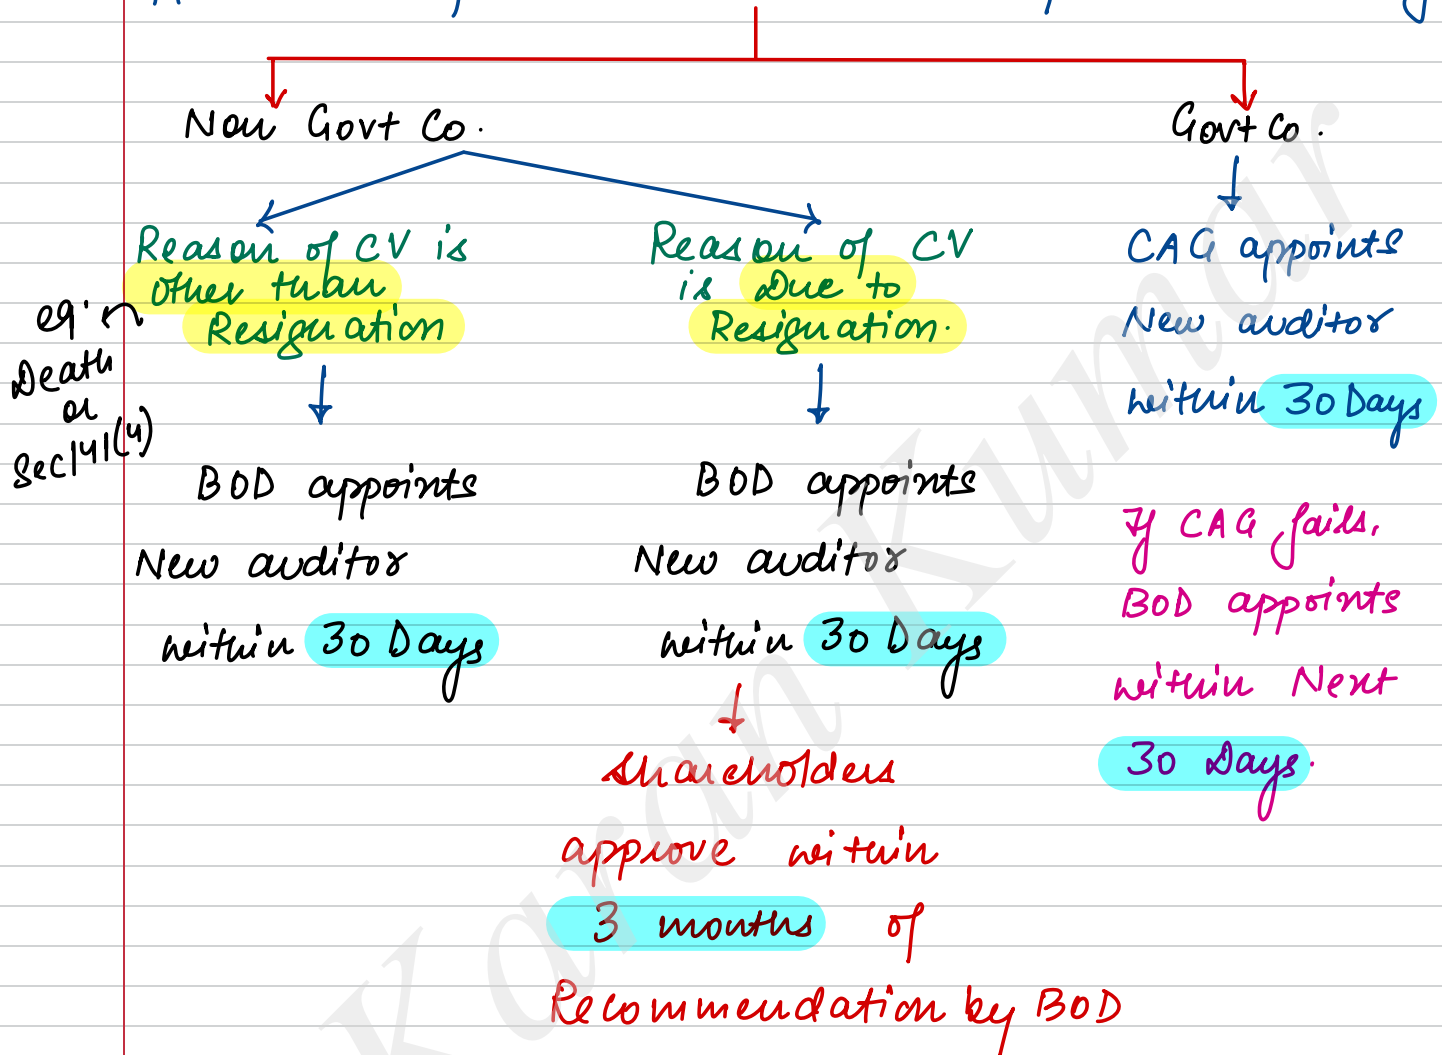 Non Govt Co.
Govt Co.
Reason of CV is
other than
Resignation
eg.
Death
or
Sec 141(4)
BOD appoints
New auditor
within 30 Days
Reason of CV
is Due to
Resignation.
BOD appoints
New auditor
within 30 Days
Shareholders
approve within
3 months of
Recommendation by BOD
CAG appoints
New auditor
within 30 Days
If CAG fails,
BOD appoints
within Next
30 Days.
Karan Kumar